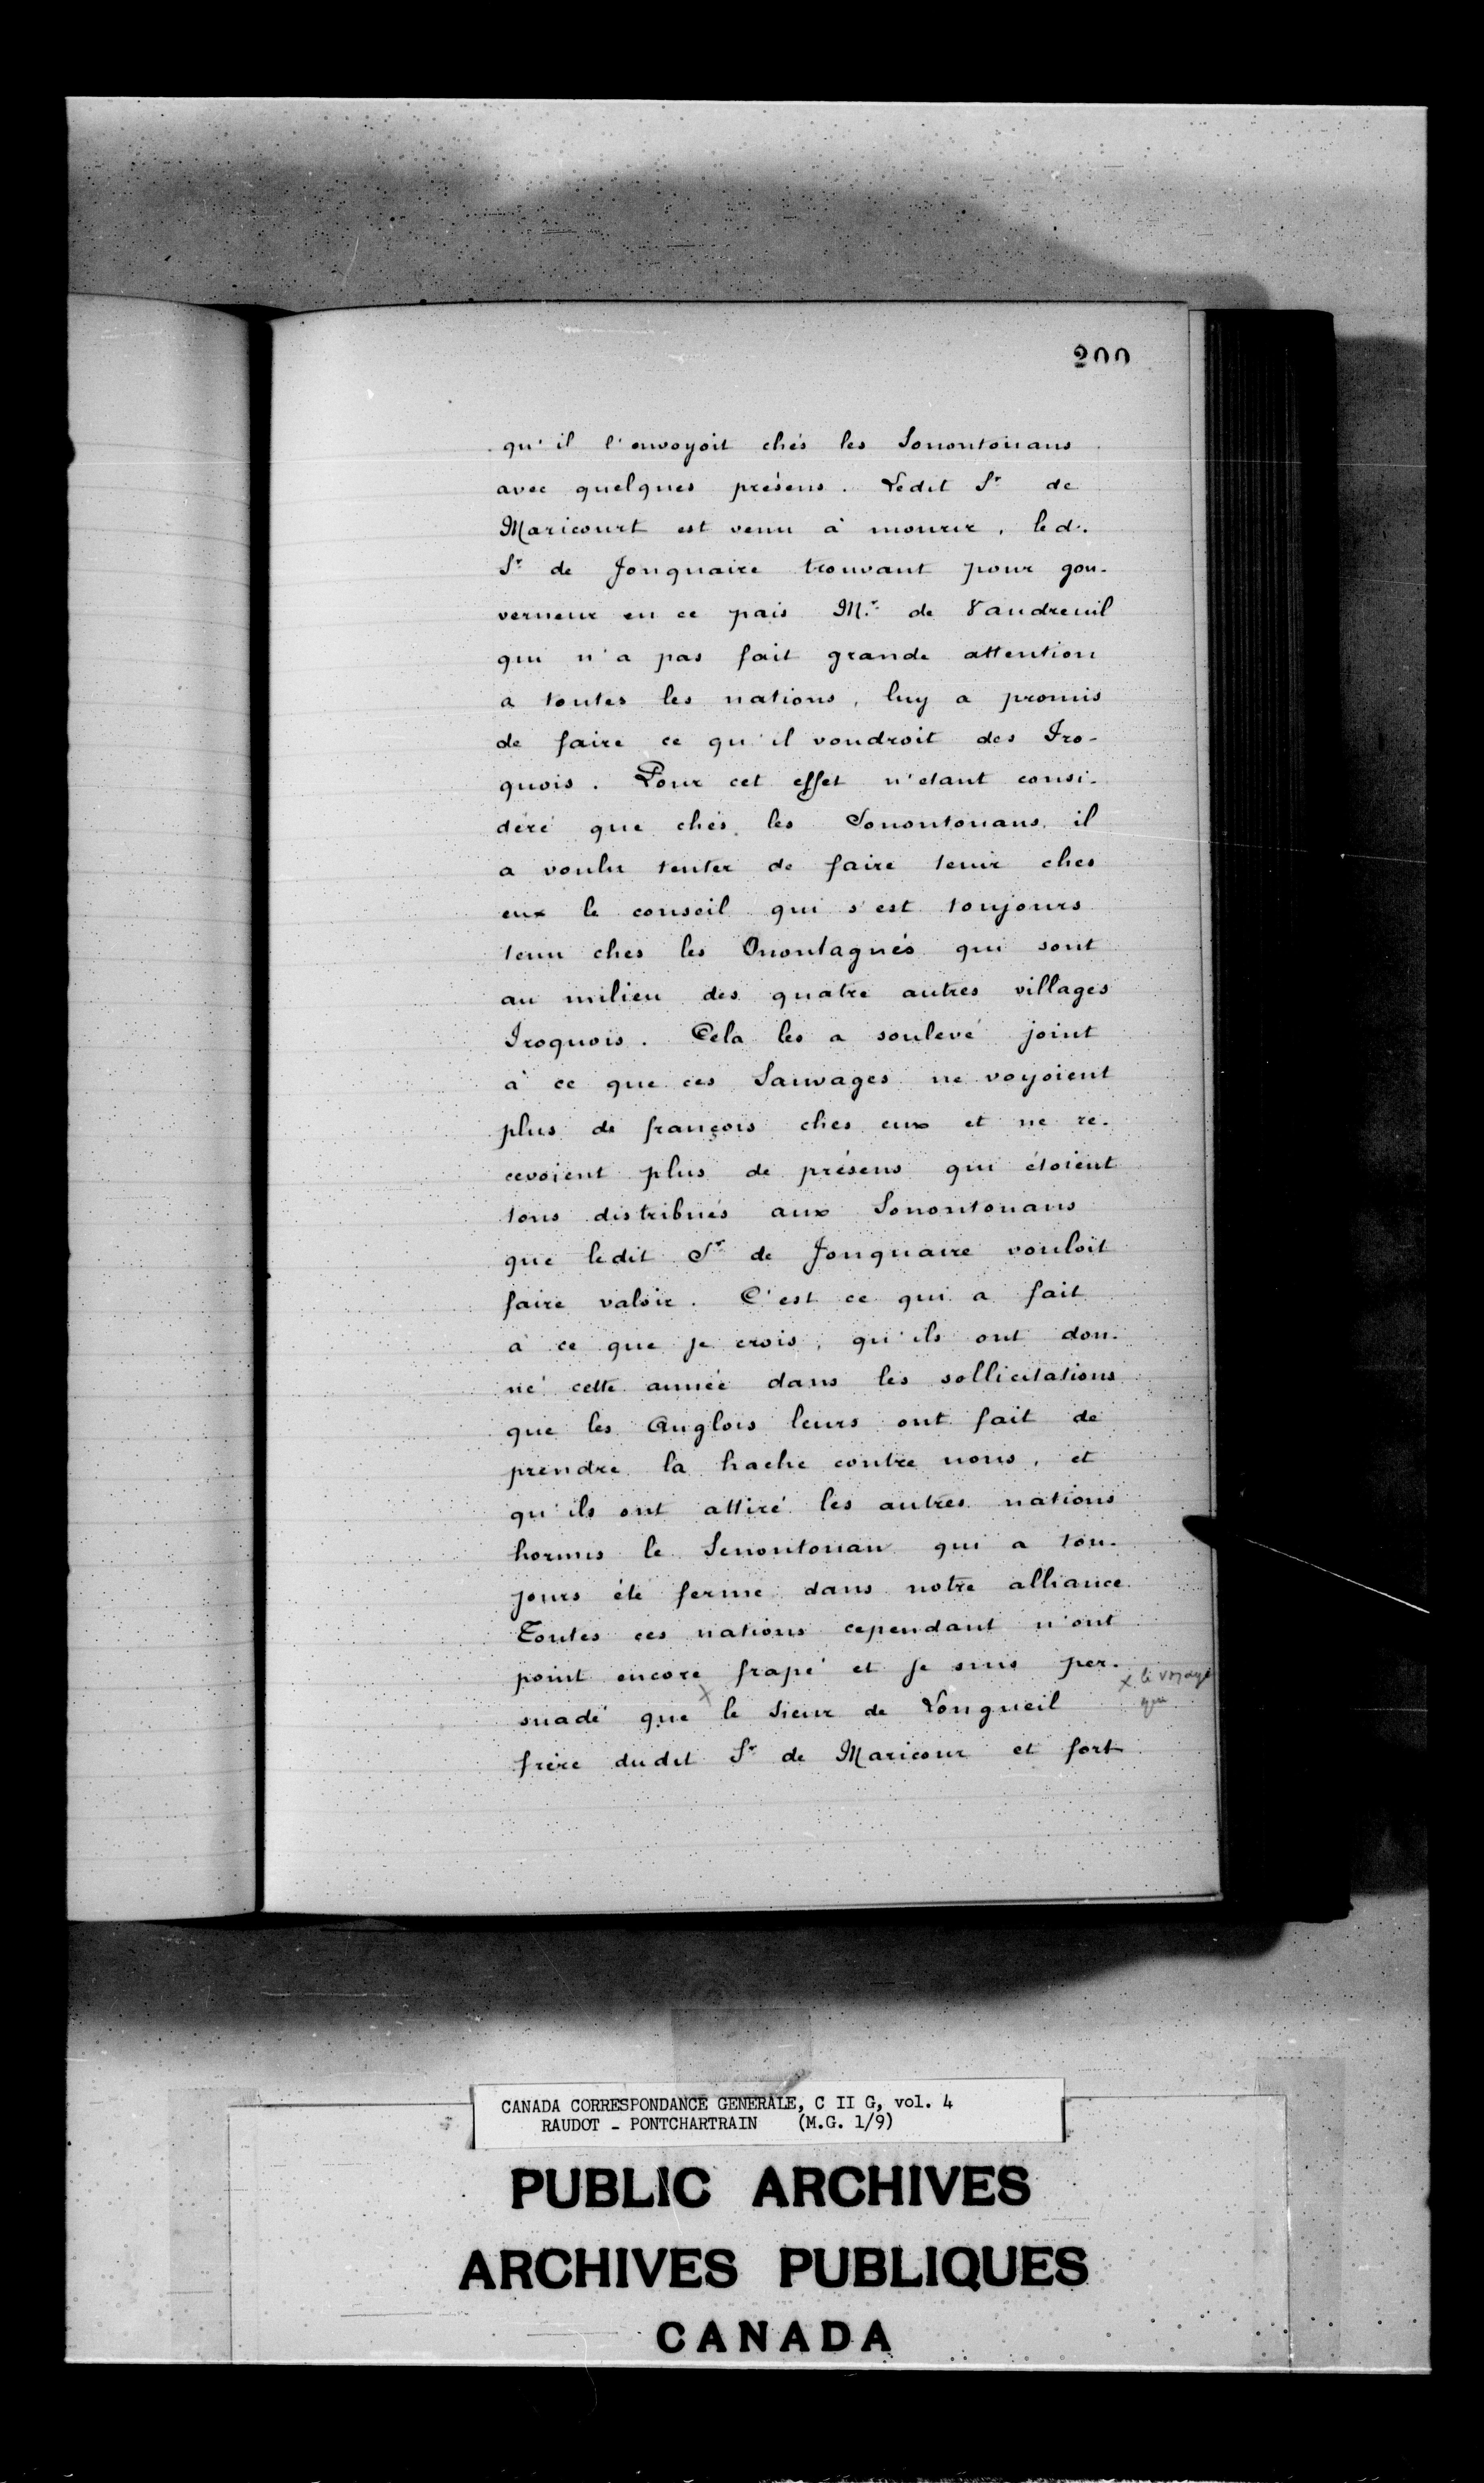 200
qu'il l'envoyoit chés les Sonontouans
avec quelques présens. Ledit Sr de
Maricourt est venu à mourir, led.
Sr de Jonquaire trouvant pour gou-
verneur en ce pais Mr. de Vaudreuil
qui n'a pas fait grande attention
a toutes les nations, luy a promis
de faire ce qu'il voudroit des Iro-
quois. Pour cet effet n'étant consi-
déré que chés les Sonontouans, il
a voulu tenter de faire tenir ches
eux le conseil qui s'est toujours
tenu ches les Onontagués qui sont
au milieu des quatre autres villages
Iroquois. Cela les a soulevé joint
à ce que ces Sauvages ne voyoient
plus de françois ches eux et ne re-
cevoient plus de présens qui étoient
tous distribués aux Sonontouans
que ledit Sr de Jonquaire vouloit
faire valoir. C'est ce qui a fait
à ce que je crois, qu'ils ont don-
né cette année dans les sollicitations
que les Anglois leurs ont fait de
prendre la hache contre nous, et
qu'ils ont attiré les autres nations
hormis le Senontouan qui a tou-
jours été ferme dans notre alliance.
Toutes ces nations cependant n'ont
point encore frapé et je suis per-
x le voyage
que
suadé que x le Sieur de Longueil
frère dudit Sr de Maricour et fort
CANADA CORRESPONDANCE GENERALE, C II G, vol. 4
RAUDOT - PONTCHARTRAIN (M.G. 1/9)
PUBLIC ARCHIVES
ARCHIVES PUBLIQUES
CANADA